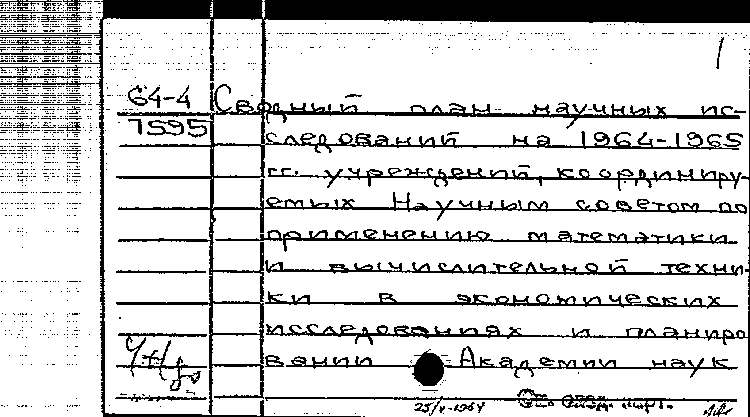 1
64-4 Сводный план научных ис-
7595 следований на 1964-1965
гг. учреждений, координиру-
емых Научным советом по
применению математики
и вычислительной техни-
ки в экономических
исследованиях и планиро
вании Академии наук
25/V-1964 См. след. карт.